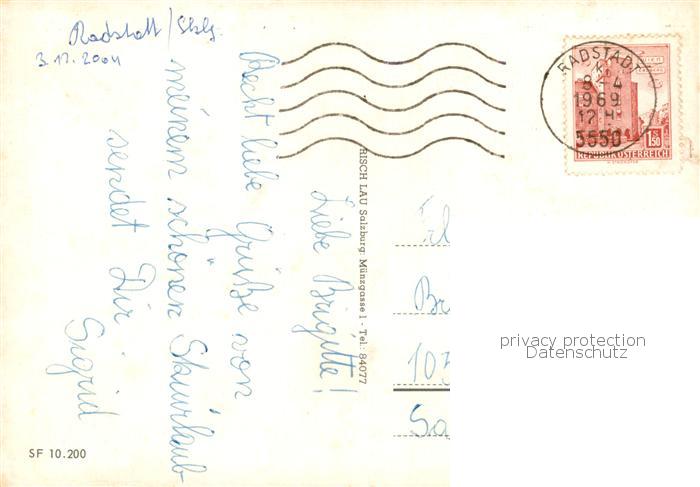 Radstatt/Sbg.
3.11.2004
Liebe Brigitte!
Recht liebe Grüße von
meinem schönen Skiurlaub
sendet Dir
Sigrid
SF 10.200
RISCH LAU Salzburg: Münzgasse 1 - Tel: 84077
RADSTADT
8-4
1969
12 H
5550
S 1.50
REPUBLIK ÖSTERREICH
Br
107
Sa
privacy protection
Datenschutz